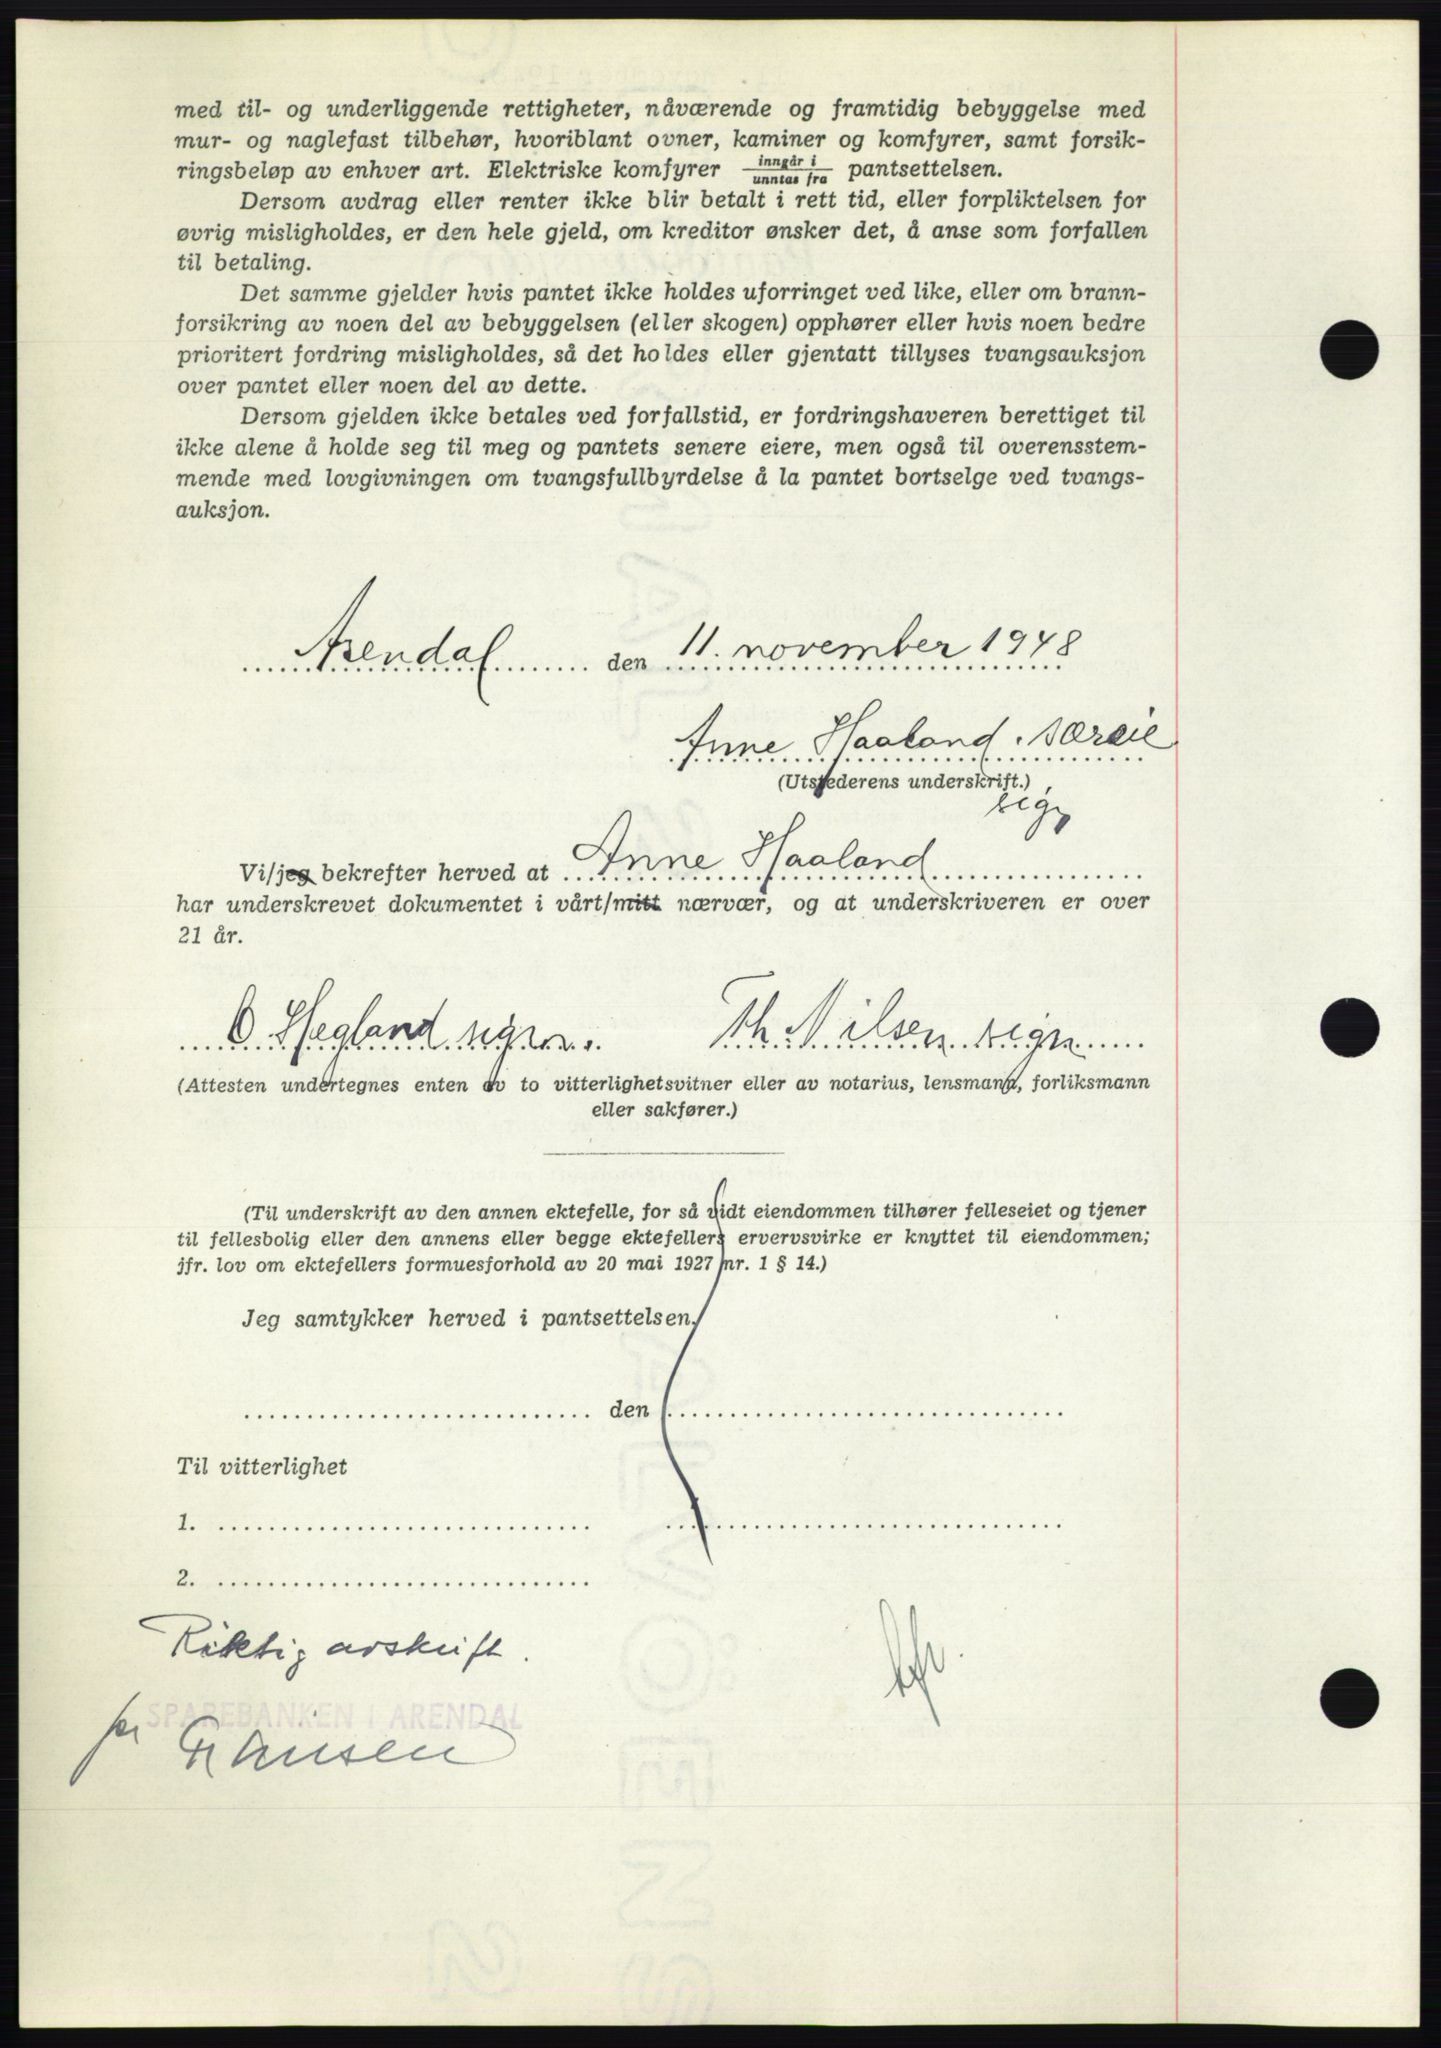 med til- og underliggende rettigheter, nåværende og framtidig bebyggelse med
mur- og naglefast tilbehør, hvoriblant ovner, kaminer og komfyrer, samt forsik-
ringsbeløp av enhver art. Elektriske komfyrer inngår i / unntas fra pantsettelsen.
Dersom avdrag eller renter ikke blir betalt i rett tid, eller forpliktelsen for
øvrig misligholdes, er den hele gjeld, om kreditor ønsker det, å anse som forfallen
til betaling.
Det samme gjelder hvis pantet ikke holdes uforringet ved like, eller om brann-
forsikring av noen del av bebyggelsen (eller skogen) opphører eller hvis noen bedre
prioritert fordring misligholdes, så det holdes eller gjentatt tillyses tvangsauksjon
over pantet eller noen del av dette.
Dersom gjelden ikke betales ved forfallstid, er fordringshaveren berettiget til
ikke alene å holde seg til meg og pantets senere eiere, men også til overensstem-
mende med lovgivningen om tvangsfullbyrdelse å la pantet bortselge ved tvangs-
auksjon.
Arendal den 11. november 1948
Anne Haaland. særeie
(Utstederens underskrift.)
sign
Vi/jeg bekrefter herved at Anne Haaland
har underskrevet dokumentet i vårt/mitt nærvær, og at underskriveren er over
21 år.
O. Hegland sign. Th. Nilsen sign
(Attesten undertegnes enten av to vitterlighetsvitner eller av notarius, lensmann, forliksmann
eller sakfører.)
(Til underskrift av den annen ektefelle, for så vidt eiendommen tilhører felleseiet og tjener
til fellesbolig eller den annens eller begge ektefellers ervervsvirke er knyttet til eiendommen;
jfr. lov om ektefellers formuesforhold av 20 mai 1927 nr. 1 § 14.)
Jeg samtykker herved i pantsettelsen.
den
Til vitterlighet
1.
2.
Riktig avskrift.
SPAREBANKEN I ARENDAL
for